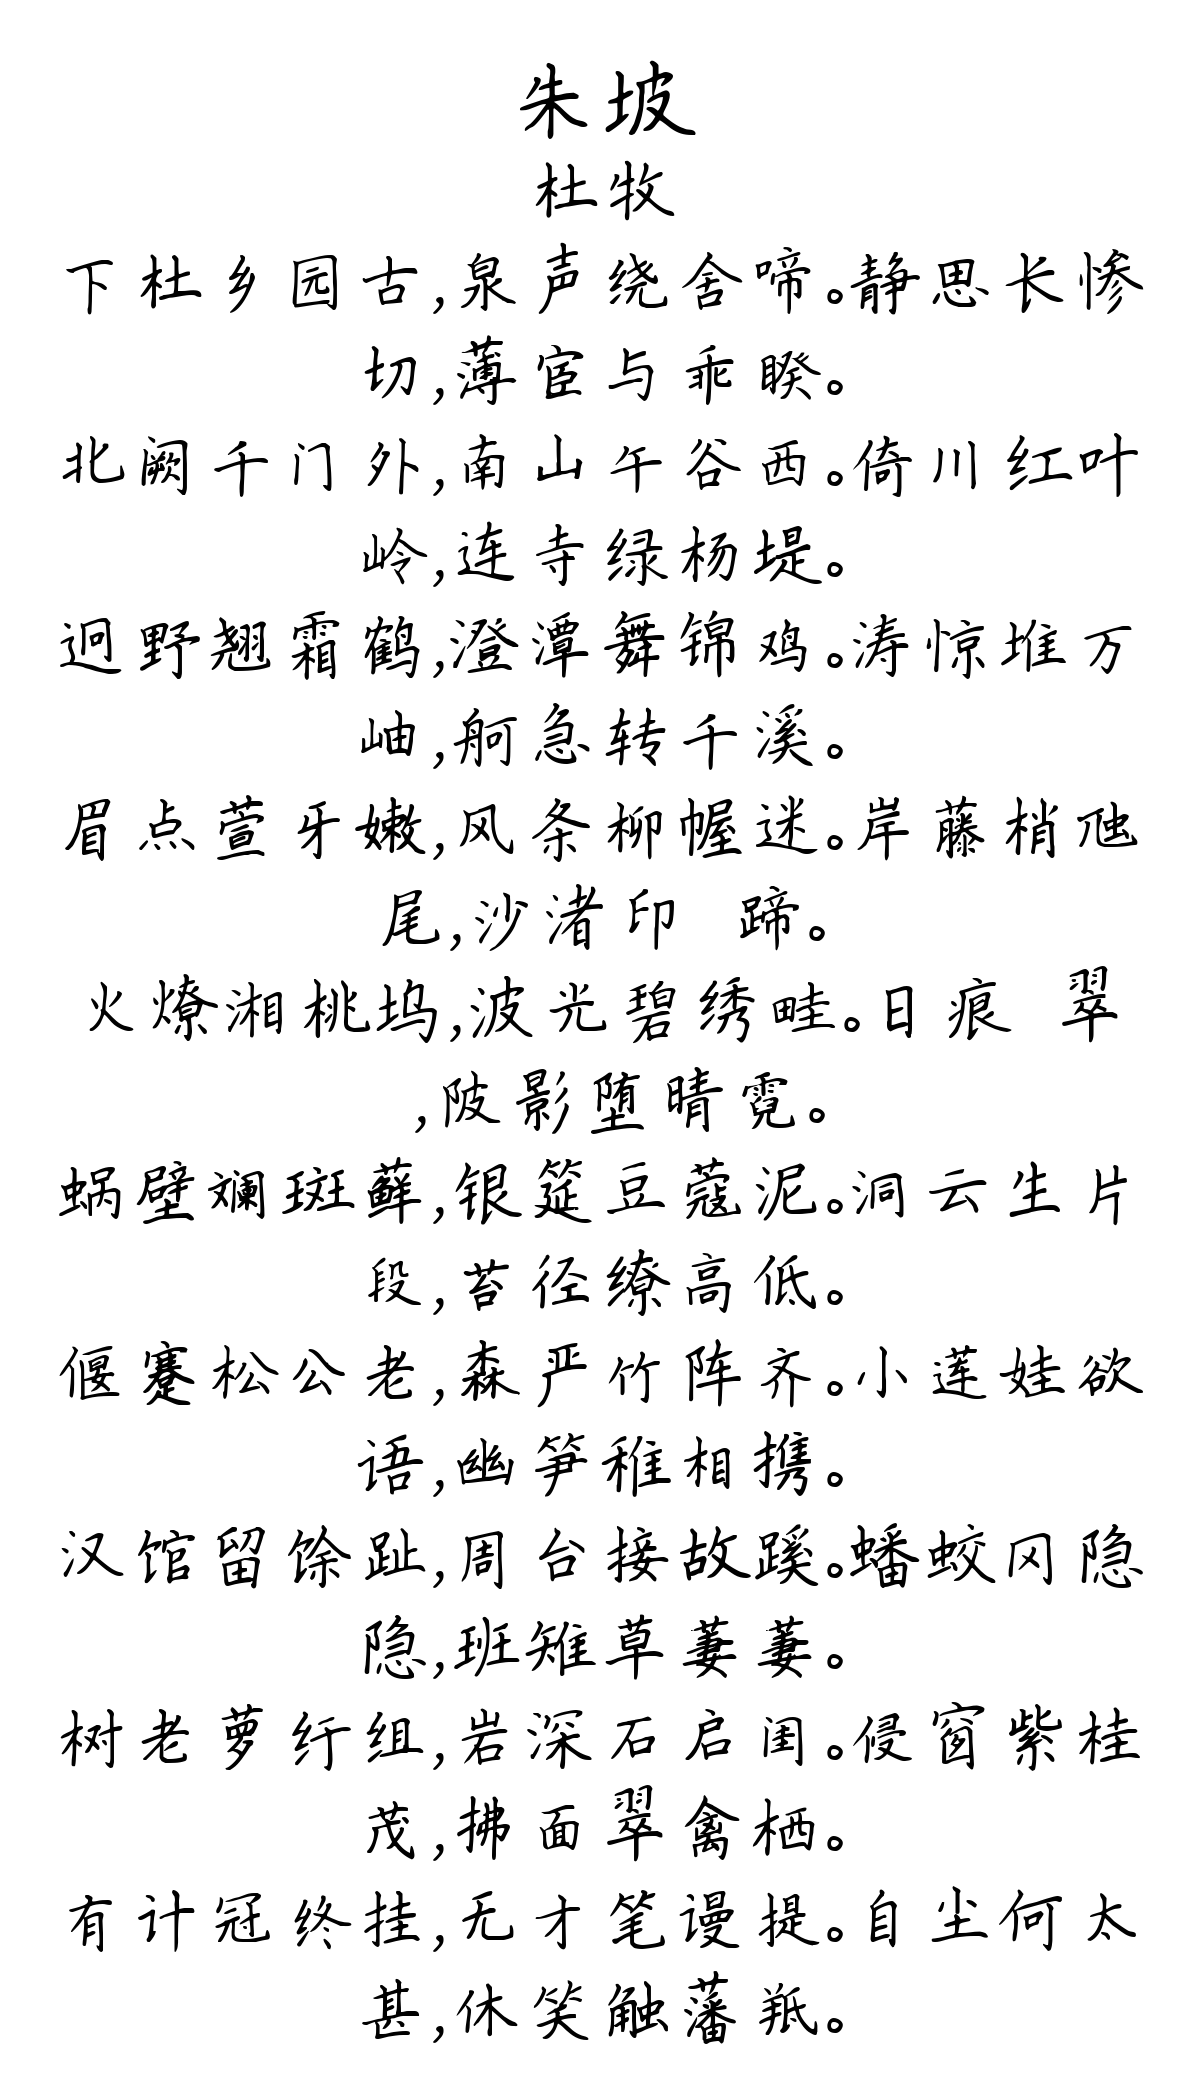 朱坡
杜牧
下杜乡园古,泉声绕舍啼。静思长惨
切,薄宦与乖睽。
北阙千门外,南山午谷西。倚川红叶
岭,连寺绿杨堤。
迥野翘霜鹤,澄潭舞锦鸡。涛惊堆万
岫,舸急转千溪。
眉点萱牙嫩,风条柳幄迷。岸藤梢虺
尾,沙渚印 蹄。
火燎湘桃坞,波光碧绣畦。日痕 翠
,陂影堕晴霓。
蜗壁斓斑藓,银筵豆蔻泥。洞云生片
段,苔径缭高低。
偃蹇松公老,森严竹阵齐。小莲娃欲
语,幽笋稚相携。
汉馆留馀趾,周台接故蹊。蟠蛟冈隐
隐,班雉草萋萋。
树老萝纡组,岩深石启闺。侵窗紫桂
茂,拂面翠禽栖。
有计冠终挂,无才笔谩提。自尘何太
甚,休笑触藩羝。